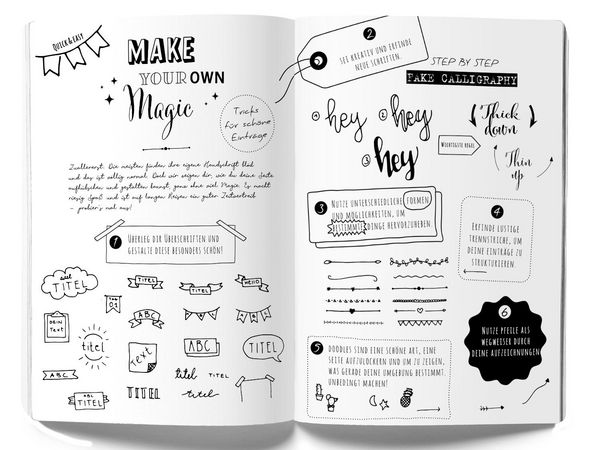 QUICK & EASY
MAKE
YOUR OWN
Magic
Tricks
für schöne
Einträge
Zuallererst: Die meisten finden ihre eigene Handschrift blöd
und das ist völlig normal. Doch wir zeigen dir, wie du deine Seite
aufhübschen und gestalten kannst, ganz ohne viel Magie. Es macht
riesig Spaß und ist auf langen Reisen ein guter Zeitvertreib
– probier's mal aus!
1 ÜBERLEG DIR ÜBERSCHRIFTEN UND
GESTALTE DIESE BESONDERS SCHÖN!
TITEL
TITEL
TITEL
HELLO
DEIN
Text
TAG
01
ABC
titel
Text
ABC
TITEL
ABC
titel
TITEL
TITEL
TITEL
titel
2
SEI KREATIV UND ERFINDE
NEUE SCHRIFTEN.
STEP BY STEP
FAKE CALLIGRAPHY
hey
hey
hey
WICHTIGSTE REGEL
Thick
down
Thin
up
3 NUTZE UNTERSCHIEDLICHE FORMEN
UND MÖGLICHKEITEN, UM
BESTIMMTE DINGE HERVORZUHEBEN.
4
ERFINDE LUSTIGE
TRENNSTRICHE, UM
DEINE EINTRÄGE ZU
STRUKTURIEREN.
5 DOODLES SIND EINE SCHÖNE ART, EINE
SEITE AUFZULOCKERN UND UM ZU ZEIGEN,
WAS GERADE DEINE UMGEBUNG BESTIMMT.
UNBEDINGT MACHEN!
6
NUTZE PFEILE ALS
WEGWEISER DURCH
DEINE AUFZEICHNUNGEN